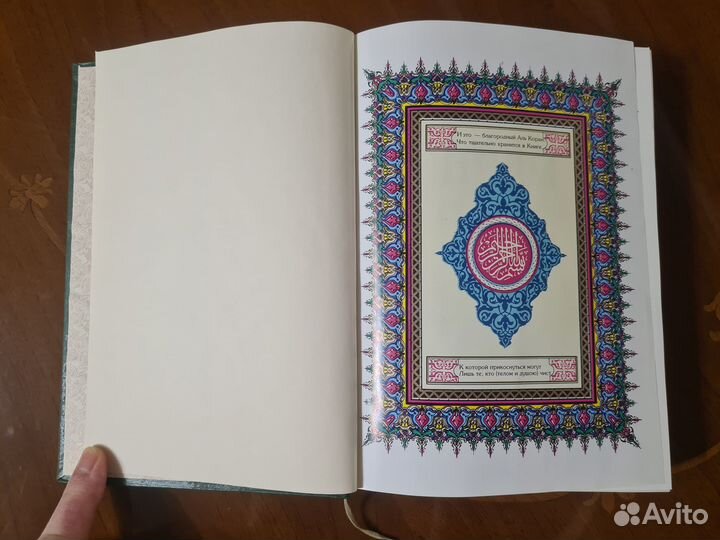 И это — благородный Аль Коран,
Что тщательно хранится в Книге,
بسم الله الرحمن الرحيم
К которой прикоснуться могут
Лишь те, кто (телом и душою) чист,
Avito